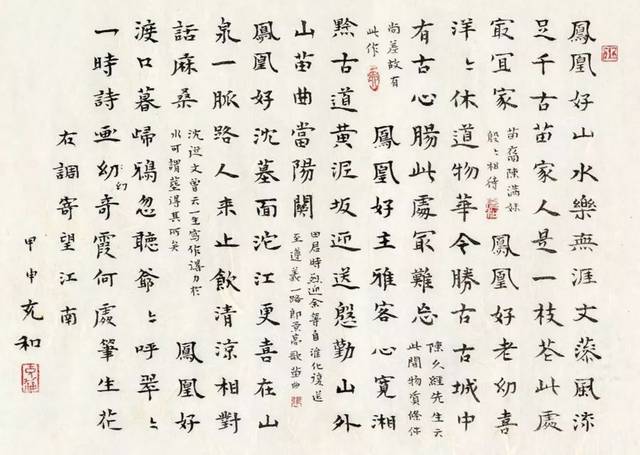 鳳凰好山水樂無涯文藻風流
足千古苗家人是一枝花此處
冣冝家
苗裔陳滿妹
殷々相待
鳳凰好老幼喜
洋々休道物華今勝古古城中
有古心腸此處冣難忘
陳久經先生云
此間物質條件
尚差故有
此作
鳳凰好主雅客心寬湘
黔古道黃泥坂迎送慇勤山外
山苗曲當陽關
田君時烈迎余等自淮化復送
至遵義一路高歌苗曲
鳳凰好沈墓面沱江更喜在山
泉一脈路人來止飲清涼相對
話麻桑
沈從文曾云一生寫作得力於
水可謂葬得其所矣
鳳凰好
渡口暮歸鴉忽聽爺々呼翠々
一時詩畫幻奇霞何處筆生花
幻
右調寄望江南
甲申充和
充和